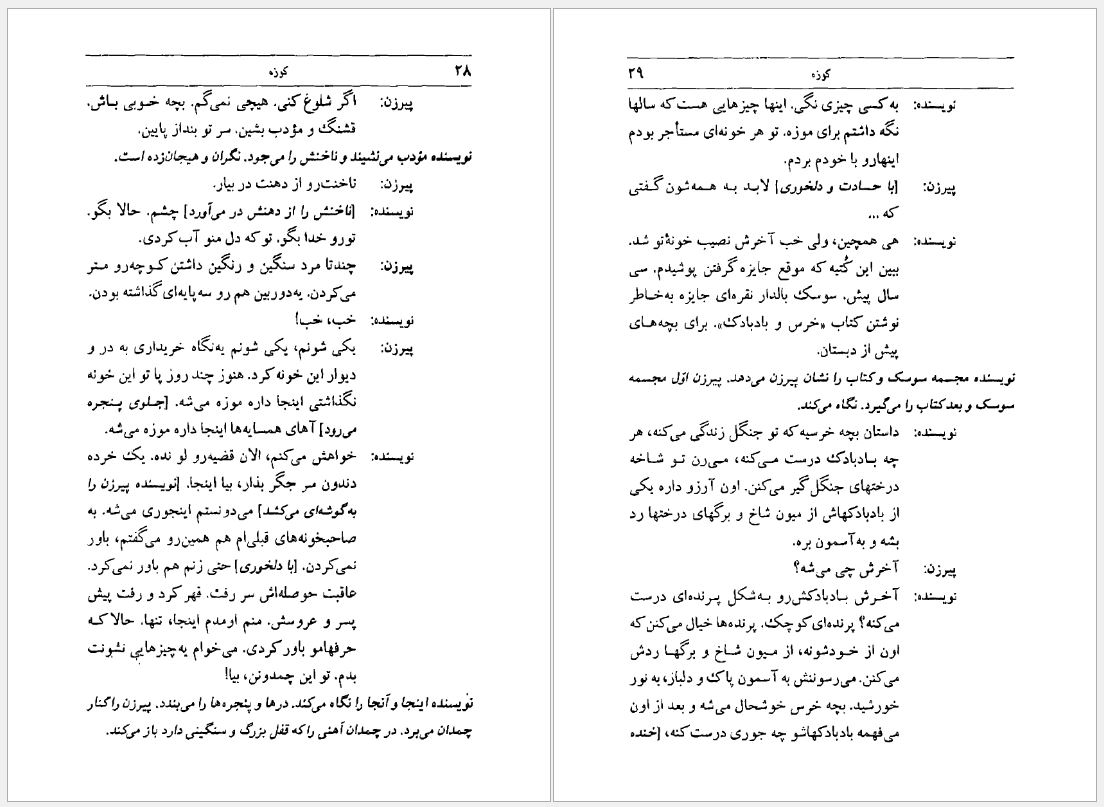 ۲۸ کوزه
پیرزن: اگر شلوغ کنی. هیچی نمی‌گم. بچه خـوبی بـاش.
قشنگ و مؤدب بشین. سر تو بنداز پایین.
نویسنده مؤدب می‌نشیند و ناخنش را می‌جود. نگران و هیجان‌زده است.
پیرزن: ناخنت‌رو از دهنت در بیار.
نویسنده: [ناخنش را از دهنش در می‌آورد] چشم. حالا بگو.
تورو خدا بگو. تو که دل منو آب کردی.
پیرزن: چندتا مرد سنگین و رنگین داشتن کـوچه‌رو مـتر
می‌کردن. یه‌دوربین هم رو سه‌پایه‌ای گذاشته بودن.
نویسنده: خب، خب!
پیرزن: یکی شونم، یکی شونم یه‌نگاه خریداری به در و
دیوار این خونه کرد. هنوز چند روز پا تو این خونه
نگذاشتی اینجا داره موزه می‌شه. [جـلوی پـنجره
می‌رود] آهای همسایه‌ها اینجا داره موزه می‌شه.
نویسنده: خواهش می‌کنم، الان قضیه‌رو لو نده. یک خرده
دندون سر جگر بذار، بیا اینجا. [نویسنده پیرزن را
به گوشه‌ای می‌کشد] می‌دونستم اینجوری می‌شه. به
صاحبخونه‌های قبلی‌ام هم همین‌رو می‌گفتم، باور
نمی‌کردن. [با دلخوری] حتی زنم هم باور نمی‌کرد.
عاقبت حوصله‌اش سر رفت. قهر کرد و رفت پیش
پسر و عروسش. منم اومدم اینجا، تنها. حالا کـه
حرفهامو باور کردی. می‌خوام یه‌چیزهایی نشونت
بدم. تو این چمدونن، بیا!
نویسنده اینجا و آنجا را نگاه می‌کند. درها و پنجره‌ها را می‌بندد. پیرزن را کنار
چمدان می‌برد. در چمدان آهنی را که قفل بزرگ و سنگینی دارد باز می‌کند.
۲۹ کوزه
نویسنده: به کسی چیزی نگی. اینها چیزهایی هست که سالها
نگه داشتم برای موزه. تو هر خونه‌ای مستأجر بودم
اینهارو با خودم بردم.
پیرزن: [با حسادت و دلخوری] لابـد بـه هـمه‌شون گـفتی
که ...
نویسنده: هی همچین، ولی خب آخرش نصیب خونهٔ تو شد.
ببین این کُتیه که موقع جایزه گرفتن پوشیدم. سی
سال پیش. سوسک بالدار نقره‌ای جایزه به‌خـاطر
نوشتن کتاب «خرس و بادبادک». برای بچه‌هـای
پیش از دبستان.
نویسنده مجسمه سوسک و کتاب را نشان پیرزن می‌دهد. پیرزن اوّل مجسمه
سوسک و بعد کتاب را می‌گیرد. نگاه می‌کند.
نویسنده: داستان بچه خرسیه که تو جنگل زندگی می‌کنه، هر
چه بـادبادک درست مـی‌کنه، مـی‌رن تـو شـاخه
درختهای جنگل گیر می‌کنن. اون آرزو داره یکی
از بادبادکهاش از میون شاخ و برگهای درختها رد
بشه و به آسمون بره.
پیرزن: آخرش چی می‌شه؟
نویسنده: آخـرش بـادبادکش‌رو بـه‌شکل پـرنده‌ای درست
می‌کنه؟ پرنده‌ای کوچک. پرنده‌ها خیال می‌کنن که
اون از خـودشونه، از مـیون شـاخ و برگها ردش
می‌کنن. می‌رسوننش به آسمون پاک و دلباز، به نور
خورشید. بچه خرس خوشحال می‌شه و بعد از اون
می‌فهمه بادبادکهاشو چه جوری درست کنه، [خنده